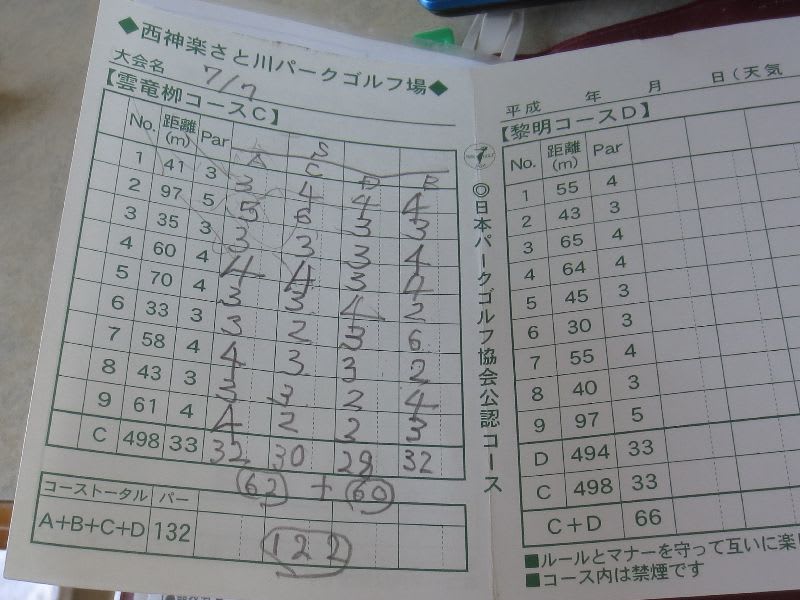 ◆西神楽さと川パークゴルフ場◆
大会名 7/7
【雲竜柳コースC】
No. 距離(m) Par A C D B
S
1 41 3 3 4 4 4
2 97 5 5 6 3 3
3 35 3 3 3 3 4
4 60 4 4 4 3 4
5 70 4 3 3 4 2
6 33 3 3 2 3 6
7 58 4 4 3 3 2
8 43 3 3 3 2 4
9 61 4 4 2 2 3
C 498 33 32 30 28 32
62 + 60
コーストータル パー
A+B+C+D 132 122
◎日本パークゴルフ協会公認コース
平成 年 月 日(天気
【黎明コースD】
No. 距離(m) Par
1 55 4
2 43 3
3 65 4
4 64 4
5 45 3
6 30 3
7 55 4
8 40 3
9 97 5
D 494 33
C 498 33
C+D 66
■ルールとマナーを守って互いに楽し
■コース内は禁煙です